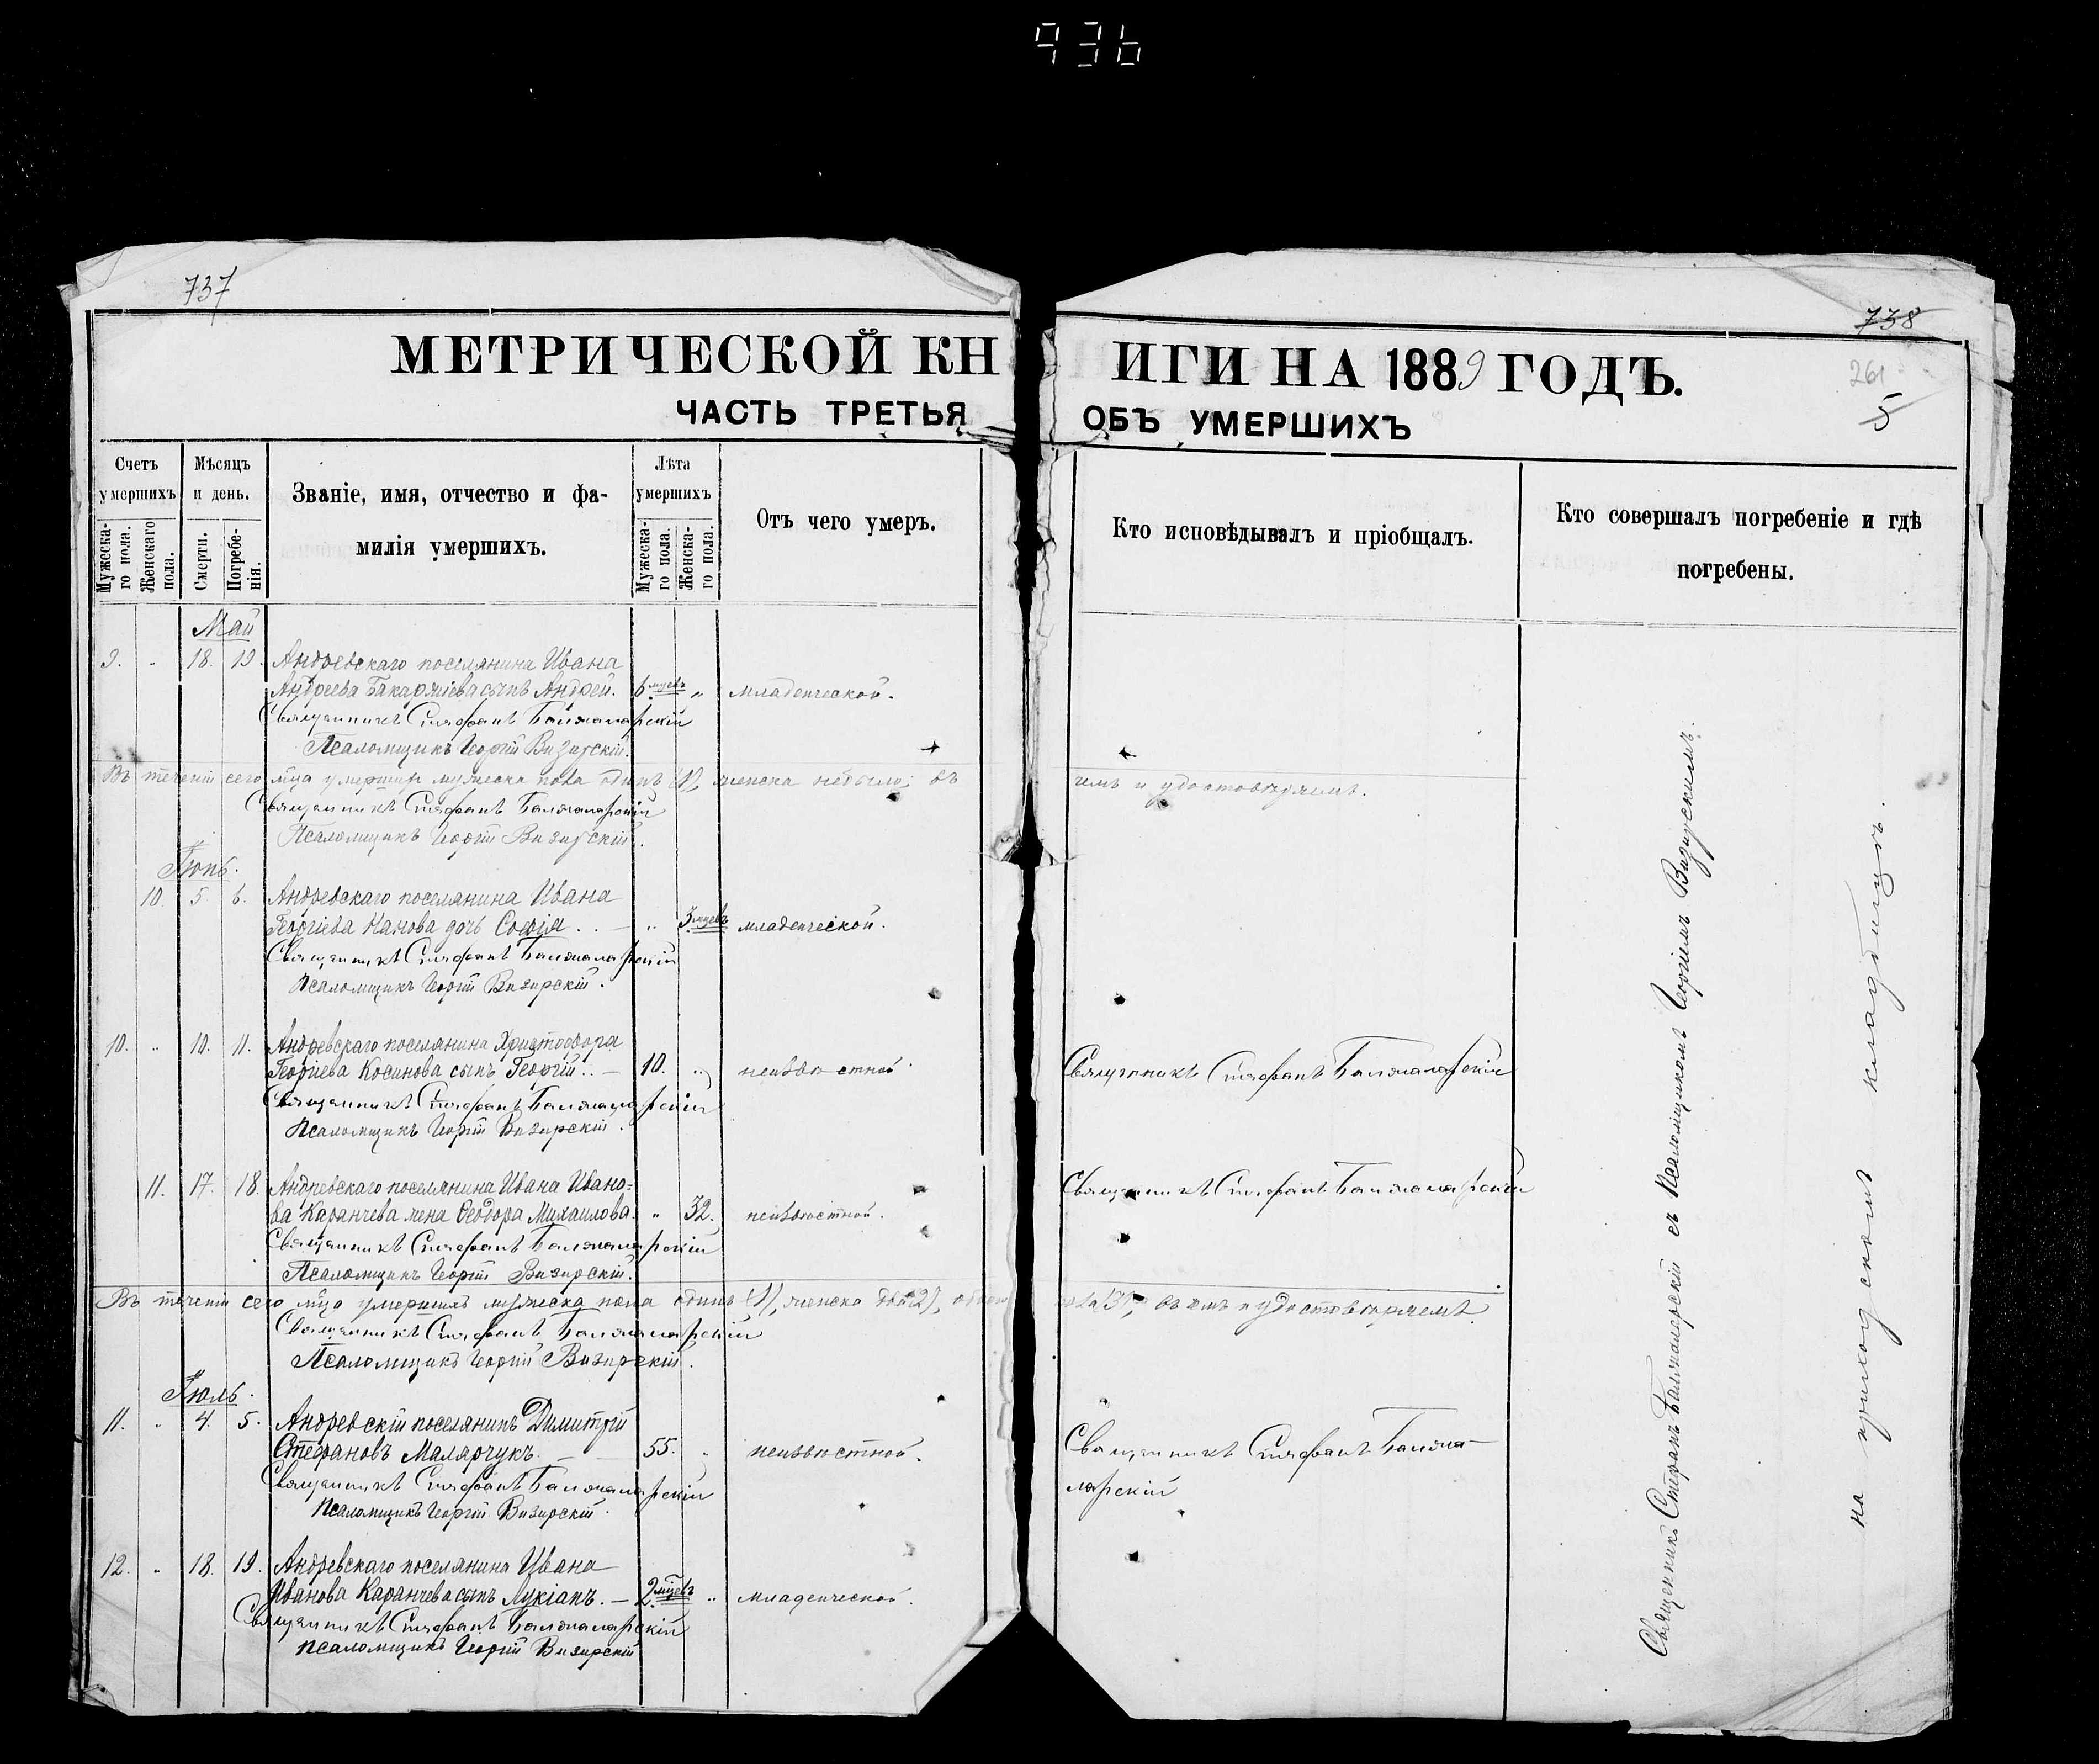 936
737
738
261
5
МЕТРИЧЕСКОЙ КНИГИ НА 1889 ГОДЪ.
ЧАСТЬ ТРЕТЬЯ ОБЪ УМЕРШИХЪ
Счетъ умершихъ
Мужескаго пола.
Женскаго пола.
Мѣсяцъ и день.
Смерти.
Погребенія.
Званіе, имя, отчество и фамилія умершихъ.
Лѣта умершихъ
Мужескаго пола.
Женскаго пола.
Отъ чего умеръ.
Кто исповѣдывалъ и пріобщалъ.
Кто совершалъ погребеніе и гдѣ погребены.
Май
9. „ 18. 19. Андревскаго поселянина Ивана
Андреева сынъ Андрей. 6 мцевъ „ младенческой.
Священникъ Стефанъ
Псаломщикъ Георгій Визирскій.
Въ теченіи сего мца умершихъ мужеска пола одинъ (1), женска небыло, въ чемъ и удостовѣряемъ.
Священникъ Стефанъ
Псаломщикъ Георгій Визирскій.
Іюнь.
10. 5. 6. Андревскаго поселянина Ивана
Георгіева Канова дочь Софія. „ 3 мцевъ младенческой.
Священникъ Стефанъ
Псаломщикъ Георгій Визирскій.
10. „ 10. 11. Андревскаго поселянина Христофора
Георгіева Косинова сынъ Георгій. 10. „ неизвѣстной. Священникъ Стефанъ
Священникъ Стефанъ
Псаломщикъ Георгій Визирскій.
11. 17. 18. Андревскаго поселянина Ивана Ивано- Священникъ Стефанъ
ва Каранчева жена Ѳеодора Михаилова. „ 32. неизвѣстной.
Священникъ Стефанъ
Псаломщикъ Георгій Визирскій.
Въ теченіи сего мца умершихъ мужеска пола одинъ (1), женска двѣ (2), въ чемъ и удостовѣряемъ.
Священникъ Стефанъ
Псаломщикъ Георгій Визирскій.
Іюль.
11. „ 4. 5. Андревскій поселянинъ Димитрій
Стефановъ Малярчукъ. 55. „ неизвѣстной. Священникъ Стефанъ
Священникъ Стефанъ
Псаломщикъ Георгій Визирскій.
12. „ 18. 19. Андревскаго поселянина Ивана
Иванова Каранчева сынъ Лукіанъ. 2 мцевъ „ младенческой.
Священникъ Стефанъ
Псаломщикъ Георгій Визирскій
Священникъ Стефанъ съ Псаломщикомъ Георгіемъ Визирскимъ.
на приходскомъ кладбищѣ.